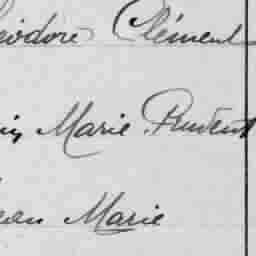 éodore Clément
in Marie Prudent
ean Marie